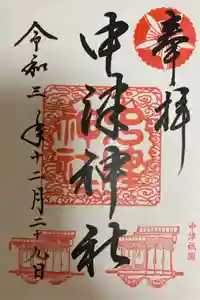 奉拝
中津神社
令和三年十二月二十九日
中津祇園